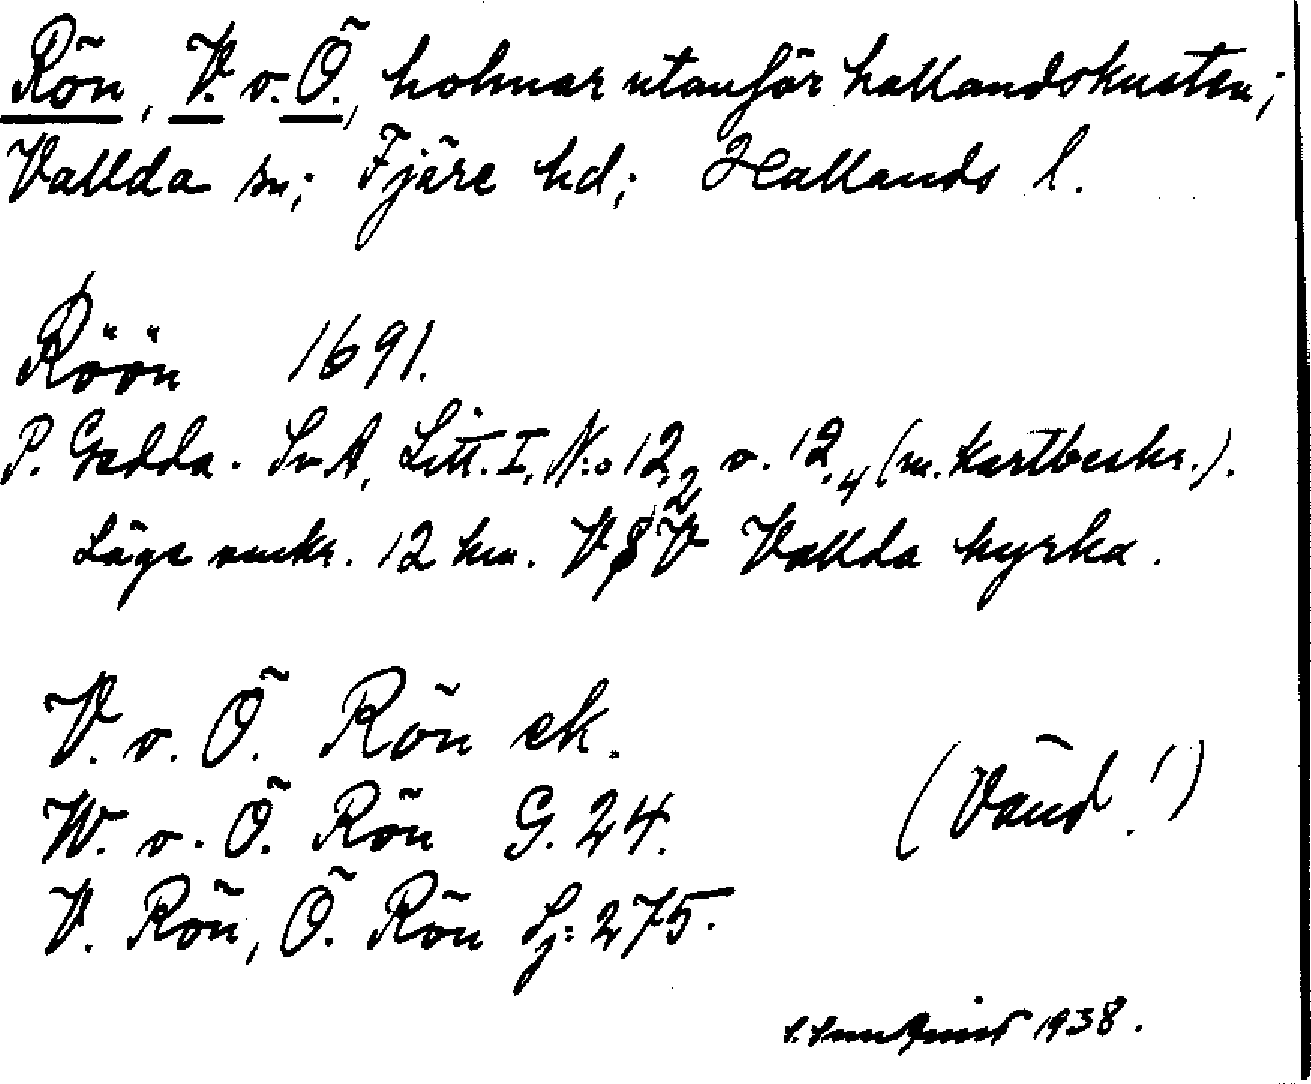 Rön, V. o. Ö., holmar utanför hallandskusten;
Vallda sn; Fjäre hd; Hallands l.
Röön 1691.
P. Gedda. SvA, Litt. I, N:o 12,2 o. 12,4 (m. kartbeskr.).
Läge omkr. 12 km. V V Vallda kyrka.
V. o. Ö. Rön ek.
W. o. Ö. Rön G. 24.
(Vänd!)
V. Rön, Ö. Rön Sj: 275.
1938.